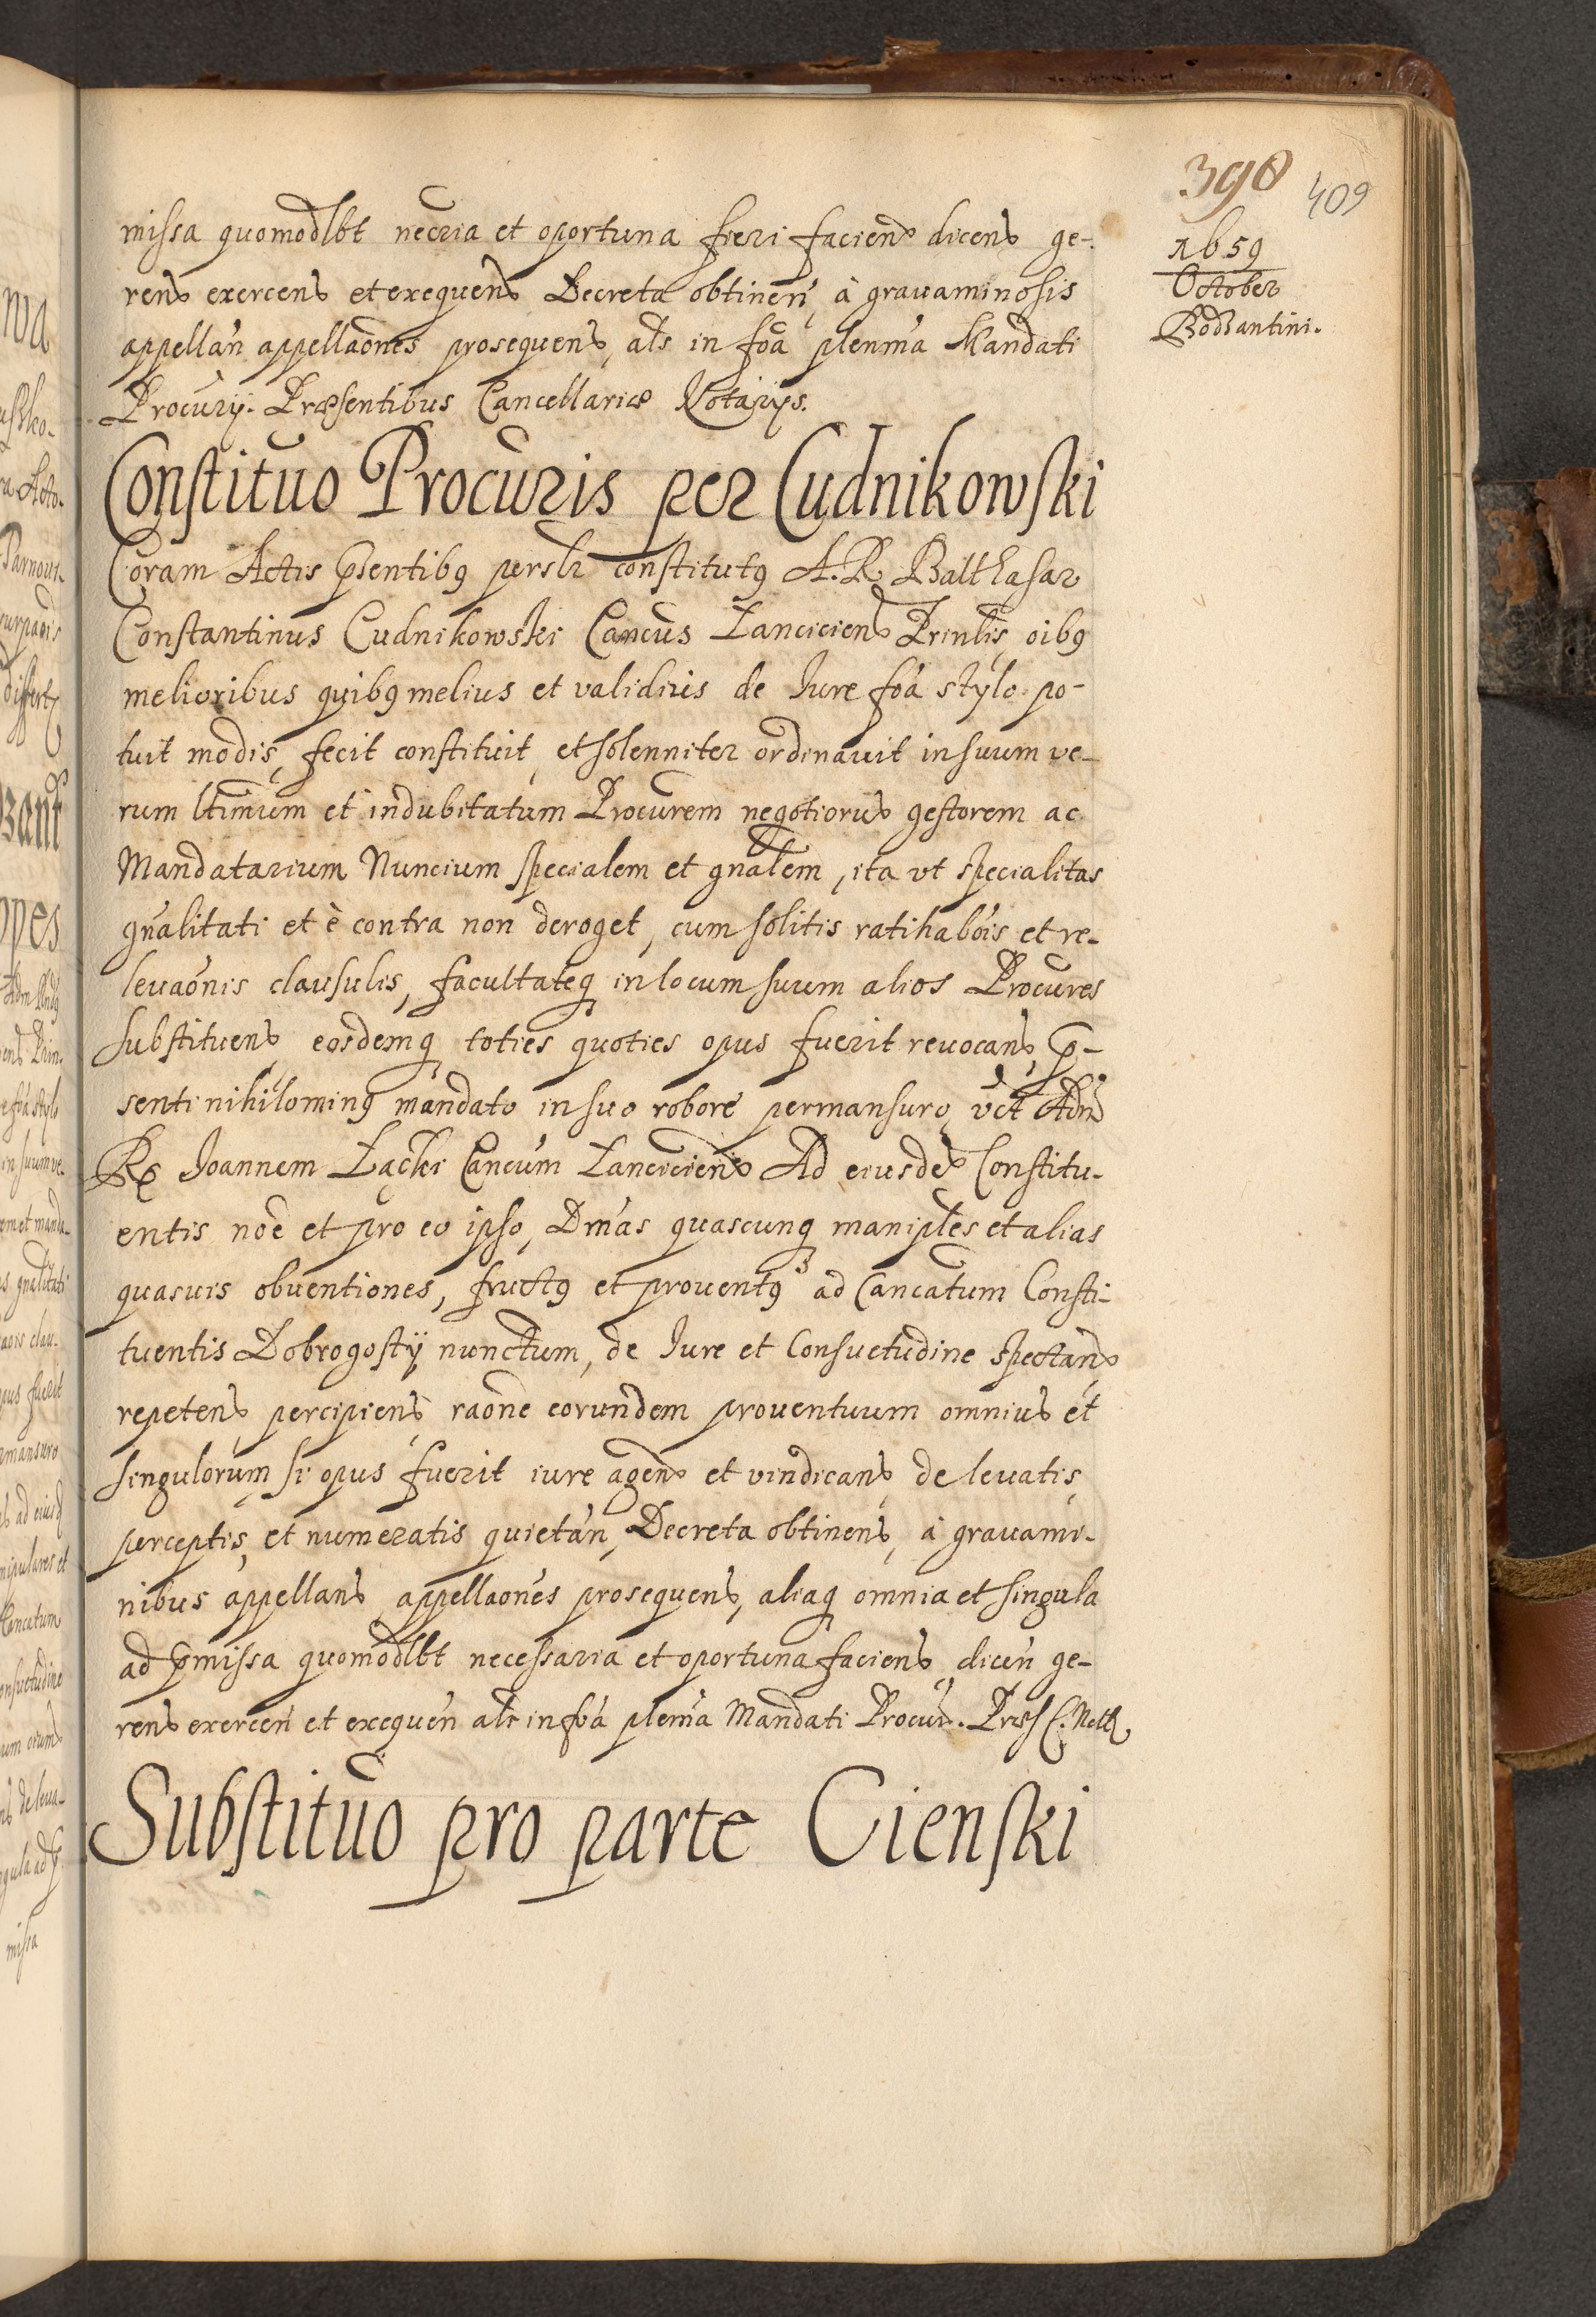 390 409
1659
October
Bodzantini.
missa quomodlbt necria et oportuna fieri faciend dicend ge-
rend exercend et exequend Decreta obtinen, à grauaminosis
appellan appellaones prosequend, als in foa plenma Mandati
Procurÿ. Præsentibus Cancellariæ Notarÿs.
Constituo Procuris per Cudnikowski
Coram Actis pñtentibq perslr constitutq A. R. Balthasar
Constantinus Cudnikowski Cancus Lanciciens Prinlis, oibq
melioribus quibq melius et validius de Iure foa stylo po-
tuit modis, fecit constituit, et solenniter ordinauit in suum ve-
rum ltimum et indubitatum Procurem negotioru gestorem ac
Mandatarium Nuncium specialem et gnalem, ita vt specialitas
gnalitati et è contra non deroget, cum solitis ratihabois et re-
leuaonis clausulis, facultateq in locum suum alios Procures
substituend, eosdemq toties quoties opus fuerit reuocand, p-
senti nihilominq mandato in suo robore permansuro, vct Adm
Rx Ioannem Łącki Cancum Lanciciens Ad eiusde Constitu-
entis noe et pro eo ipso, Dmas quascunq maniples et alias
quasuis obuentiones, fructq et prouentq ad Cancatum Consti-
tuentis Dobrogostÿ nunctum, de Iure et Consuetudine spectand
repetend percipiend raone eorundem prouentuum omnius et
singulorum, si opus fuerit iure agend et vindicand, de leuatis,
perceptis, et numeratis quietan, Decreta obtinend, à grauami-
nibus appelland appellaones prosequend, aliaq omnia et singula
ad pmissa quomodlbt necessaria et oportuna faciend, dicen ge-
rend exercen et exequen als in foa plenia Mandati Procur. Præs C. Notk
Substituo pro parte Cienski